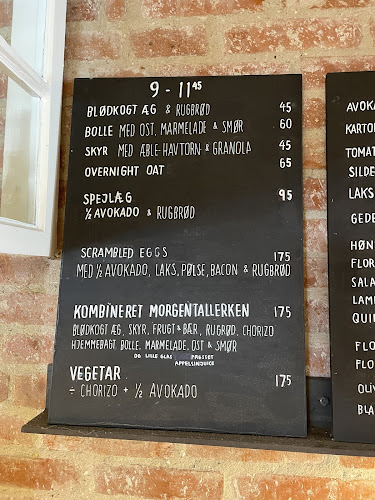 9 - 11⁴⁵
BLØDKOGT ÆG & RUGBRØD 45
BOLLE MED OST, MARMELADE & SMØR 60
SKYR MED ÆBLE-HAVTORN & GRANOLA 45
OVERNIGHT OAT 65
SPEJLÆG 95
½ AVOKADO & RUGBRØD
SCRAMBLED EGGS 175
MED ½ AVOKADO, LAKS, PØLSE, BACON & RUGBRØD
KOMBINERET MORGENTALLERKEN 175
BLØDKOGT ÆG, SKYR, FRUGT & BÆR, RUGBRØD, CHORIZO
HJEMMEBAGT BOLLE, MARMELADE, OST & SMØR
OG LILLE GLAS PRESSET
APPELSINJUICE
VEGETAR 175
÷ CHORIZO + ½ AVOKADO
AVOKA
KARTO
TOMAT
SILDE
LAKS
GEDE
HØN
FLOR
SALA
LAM
QUI
FLO
FLO
OLI
BLA